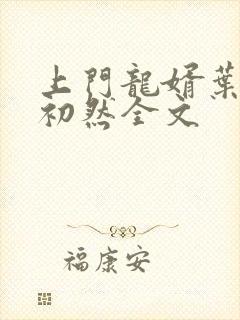 上門龍婿葉
初然全文
福康安